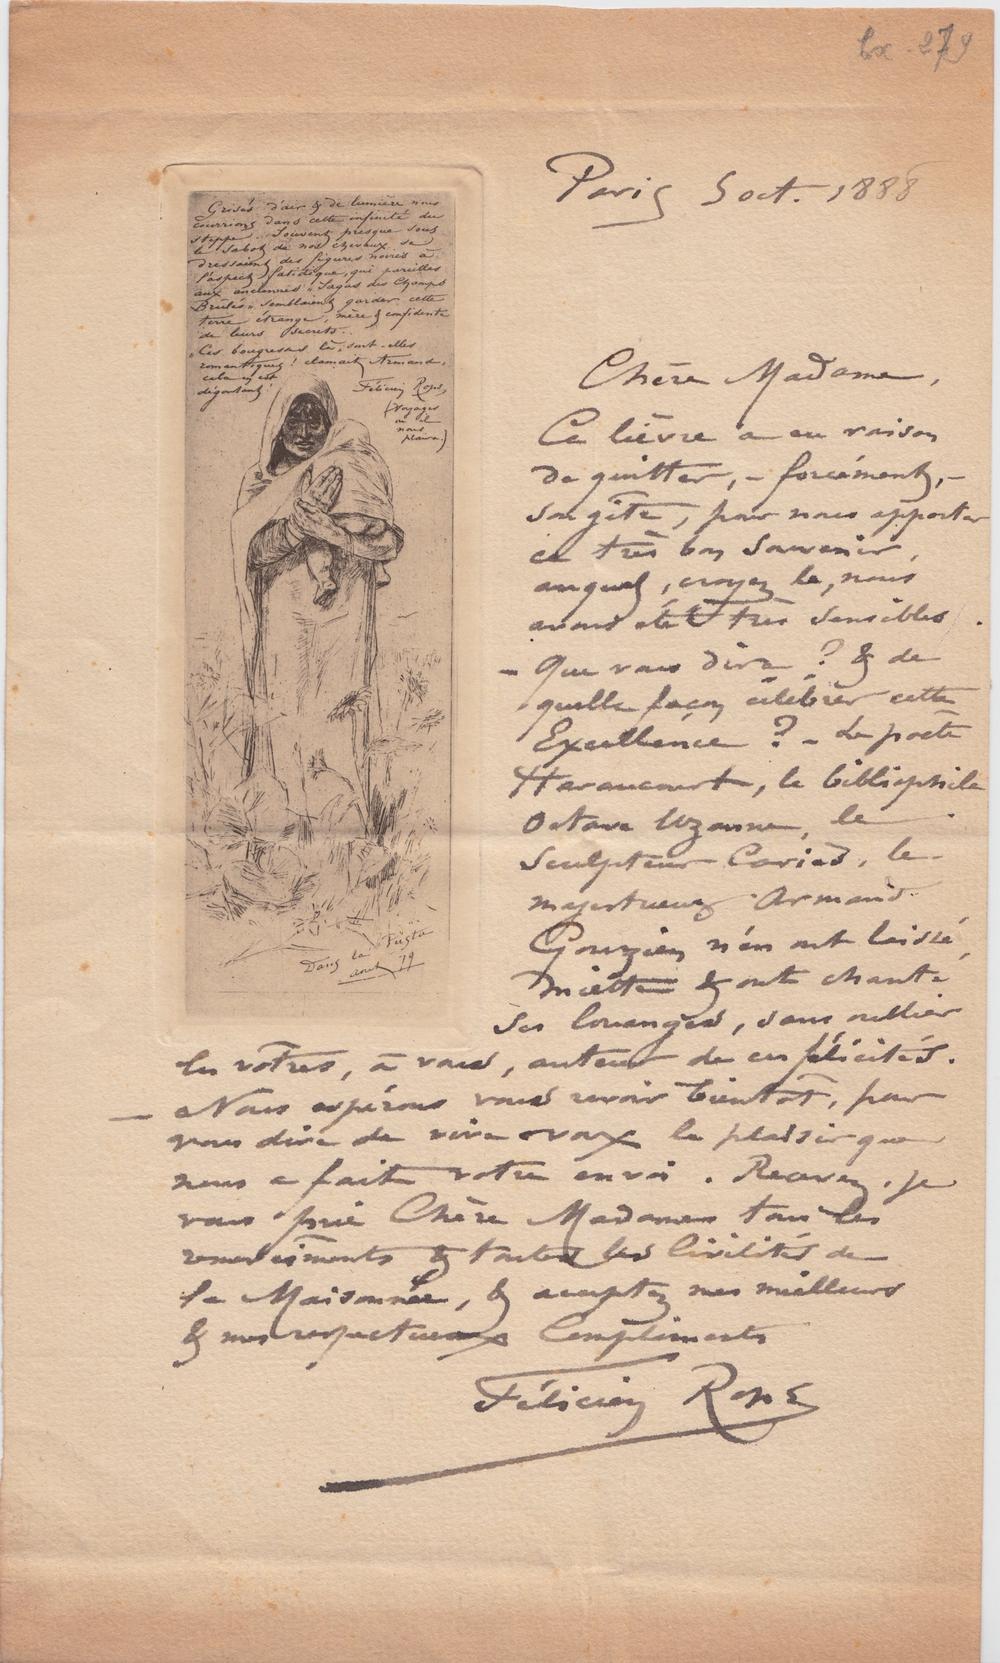 279
Paris 5 oct. 1888
Grisés d'air & de lumière nous
courrions dans cette infinité du
steppe. Souvent presque sous
le sabot de nos chevaux se
dressaient des figures noires à
l'aspect fatidique, qui pareilles
aux anciennes « Sagas des Champs
Brulés » semblaient garder cette
terre étrange, mère & confidente
de leurs secrets...
« Ces bougresses là, sont-elles
romantiques ! clamait Armand,
cela en est
dégoutant !
Félicien Rops,
(Voyages
où il
nous
plaira.)
Dans la Puszta
aout 79
Chère Madame,
Ce lièvre a eu raison
de quitter, - forcément, -
son gîte, pour nous apporter
ce très bon souvenir,
auquel, croyez le, nous
avons été très sensibles.
- Que vous dire ? & de
quelle façon célébrer cette
Excellence ? - Le poète
Haraucourt, le bibliophile
Octave Uzanne, le
sculpteur Cariès, le
majestueux Armand
Gouzien n'en ont laissé,
miette & ont chanté
ses louanges, sans oublier
les vôtres, à vous, auteur de ces félicités.
- Nous espérons vous revoir bientôt, pour
vous dire de vive voix le plaisir que
nous a fait votre envoi. Recevez, je
vous prie Chère Madame tous les
remerciments & toutes les Civilités de
la Maisonnée, & acceptez mes meilleurs
& mes respectueux Compliments
Félicien Rops